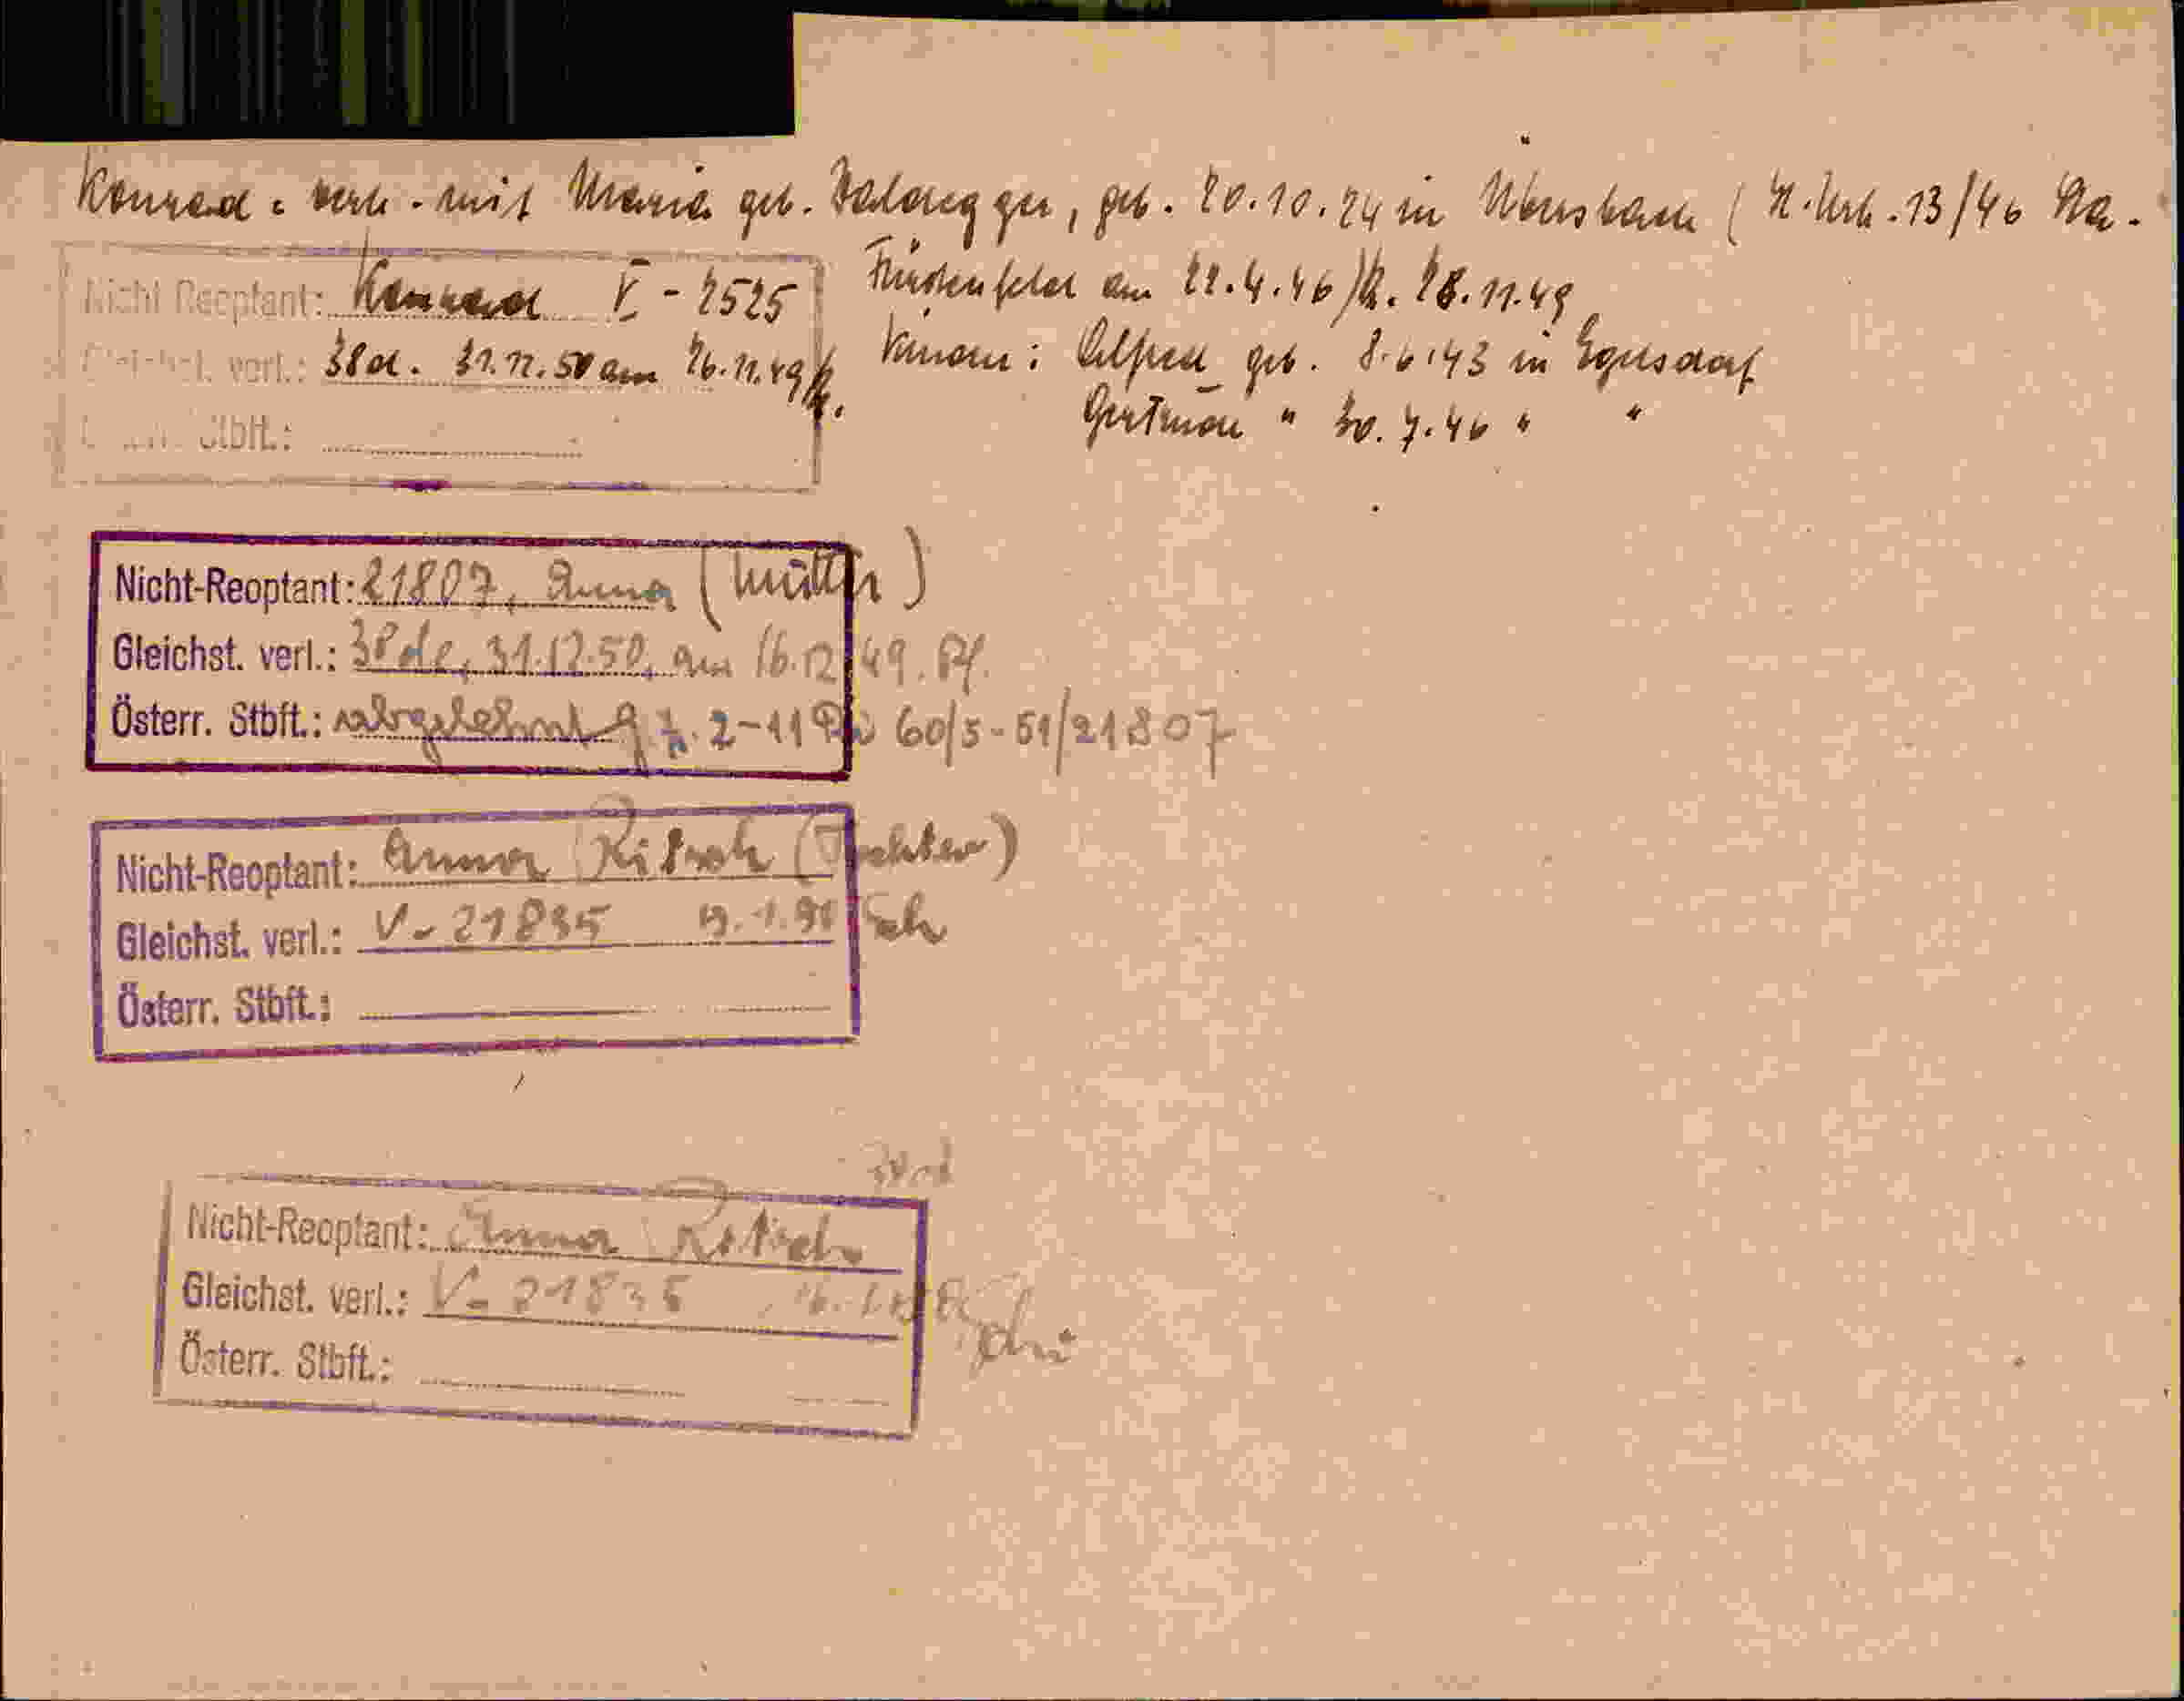 Konrad: verh. mit Maria geb. Haldegger, geb. 20.10.24 in Übersbach (H. Urk. 13/46 Sta.
Fürstenfeld am 22.4.46) 28.11.49
Nicht Reoptant: Konrad V - 2525
Gleichst. verl.: 38d. 31.12.50 am 26.11.49
Kinder: Alfred geb. 8.6.43 in Egelsdorf
Österr. Stbft.:
Gertrude " 30.7.46 " "
Nicht-Reoptant: 21807, Anna (Mutter)
Gleichst. verl.: 38de, 31.12.50, am 16.12.49. Pf.
Österr. Stbft.: abgelehnt 2-11 60/5-51/21807
Nicht-Reoptant: Anna Ritsch (Tochter)
Gleichst. verl.: V-21835
Österr. Stbft.:
Nicht-Reoptant: Anna Ritsch
Gleichst. verl.: V-21835
Österr. Stbft.: